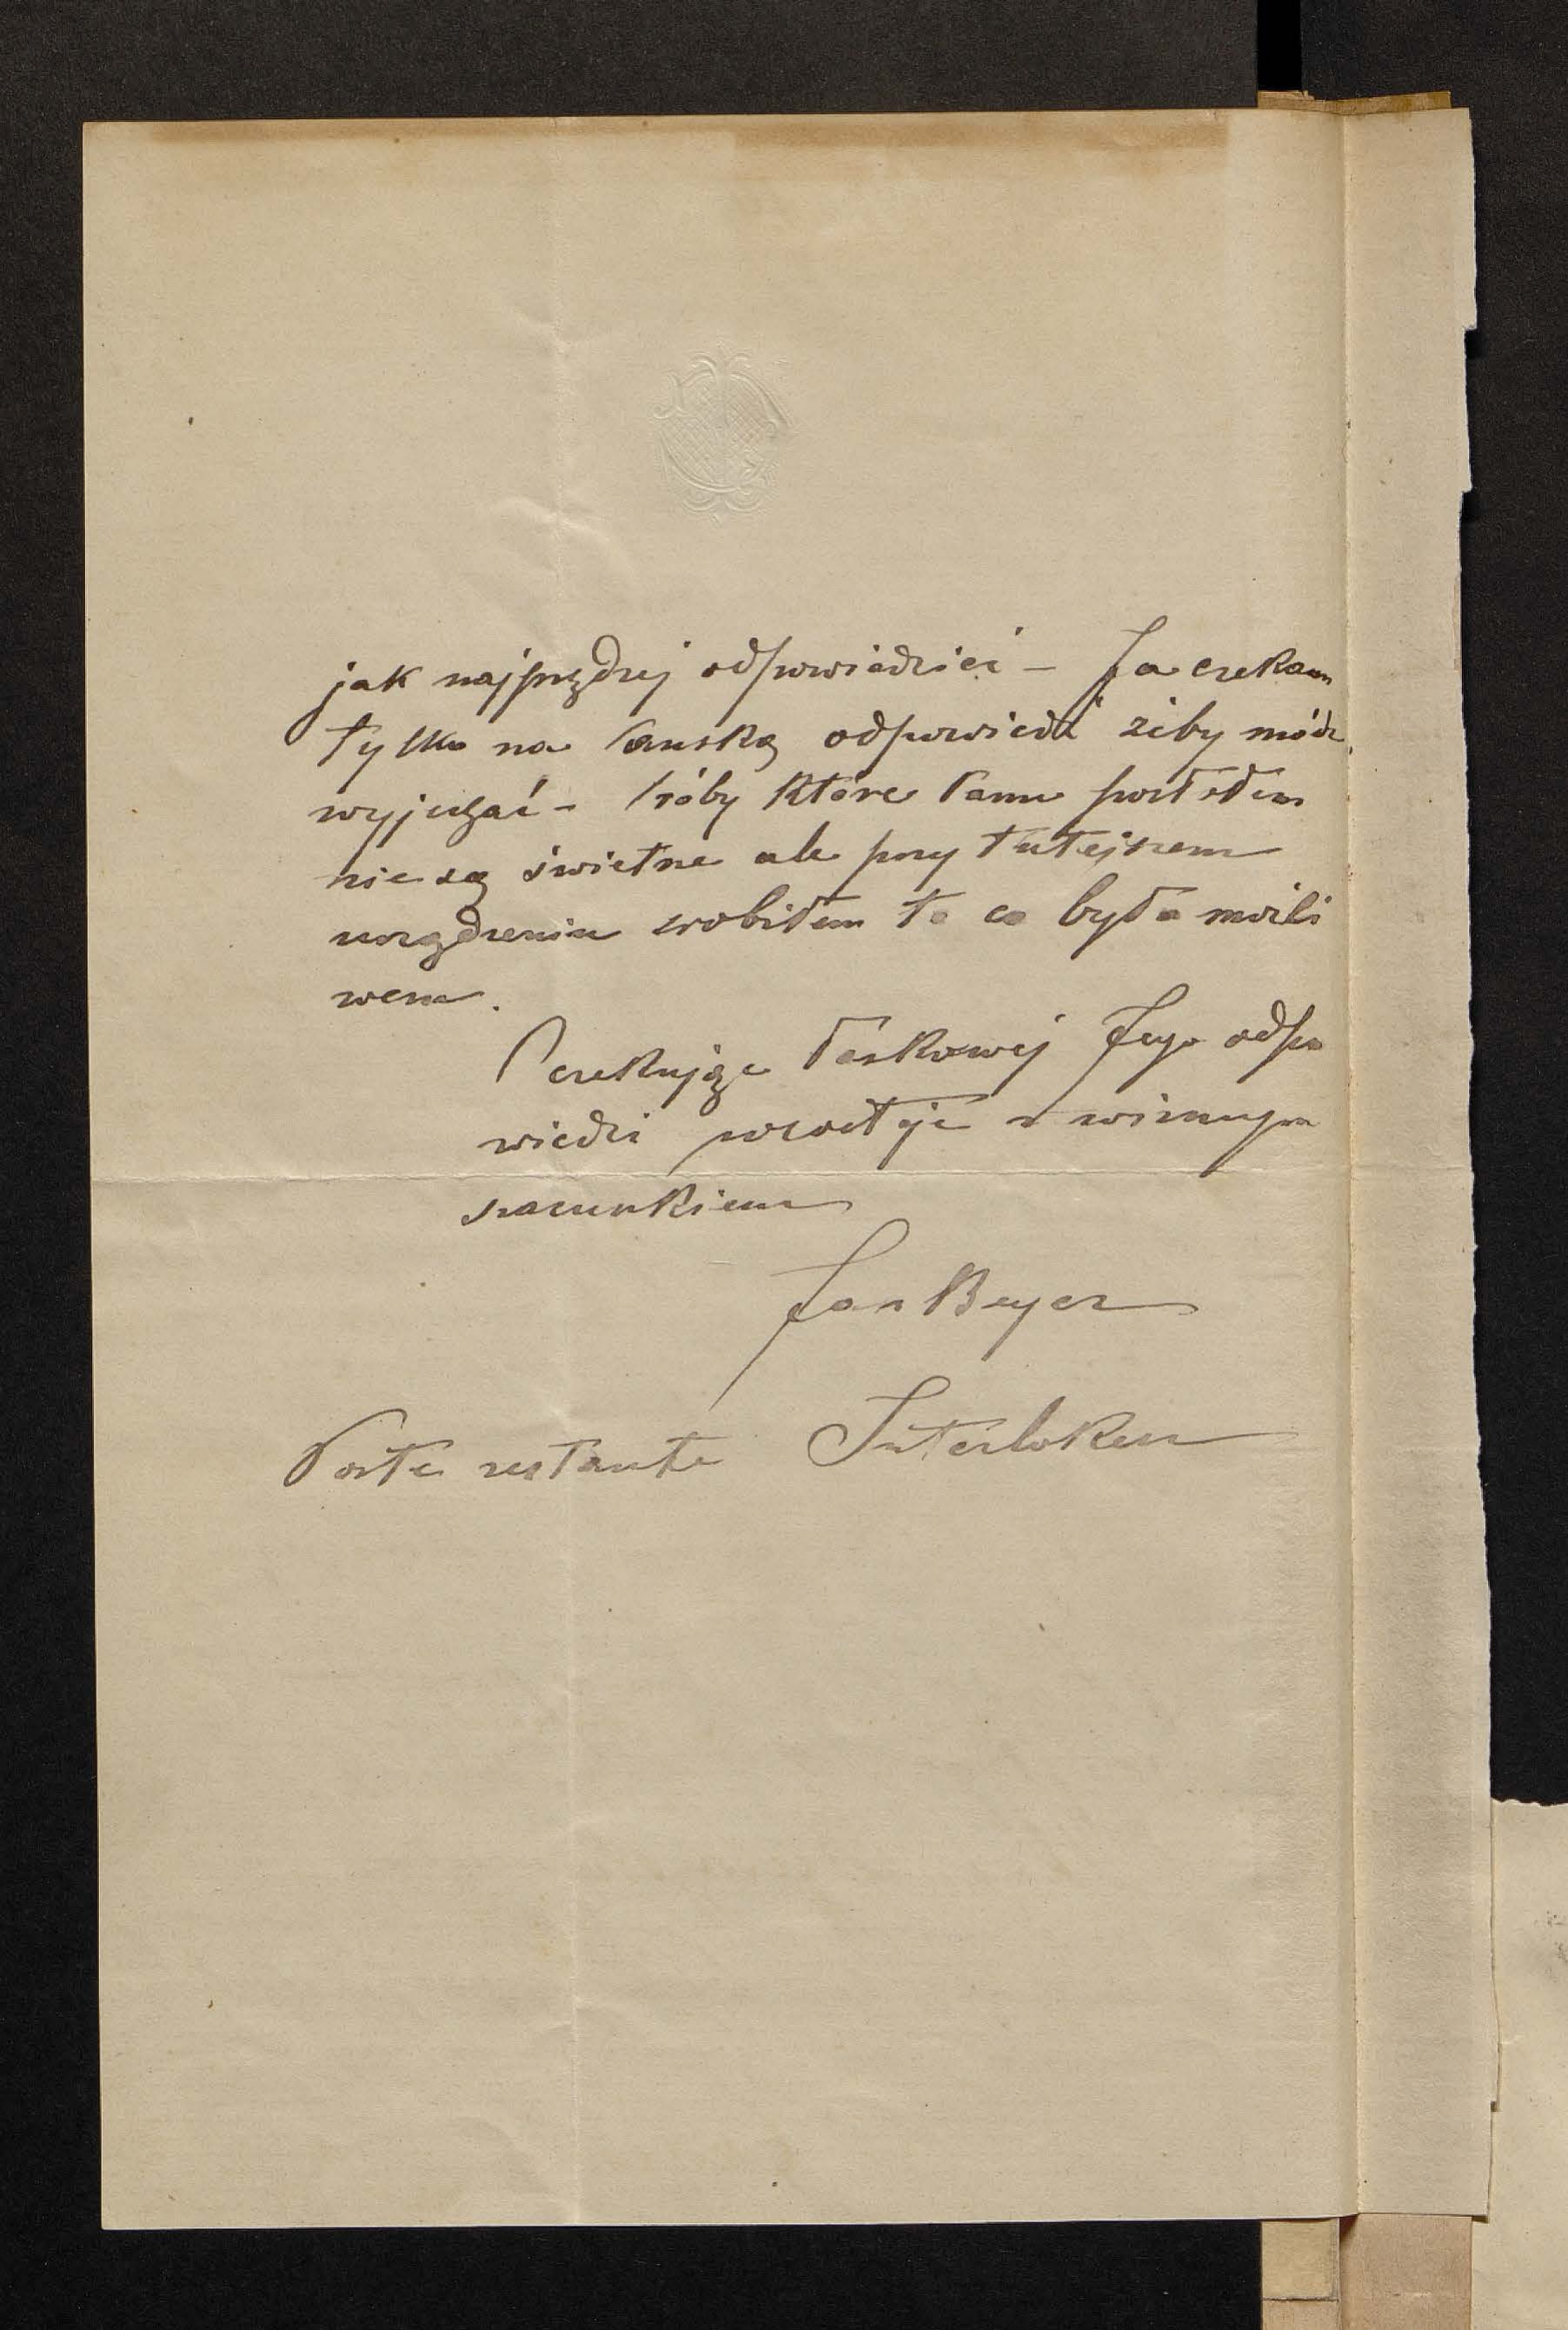 jak najprędzej odpowiedzieć – Ja czekam
tylko na Pańską odpowiedź żeby módz
wyjechać – Próby które Panu posłałem
nie są świetne ale przy tutejszem
urządzeniu zrobiłem to co było możli
wem.
Oczekując łaskawej Jego odpo
wiedzi pozostaję z winnym
szacunkiem
Jan Beyer
Poste restante Interlaken